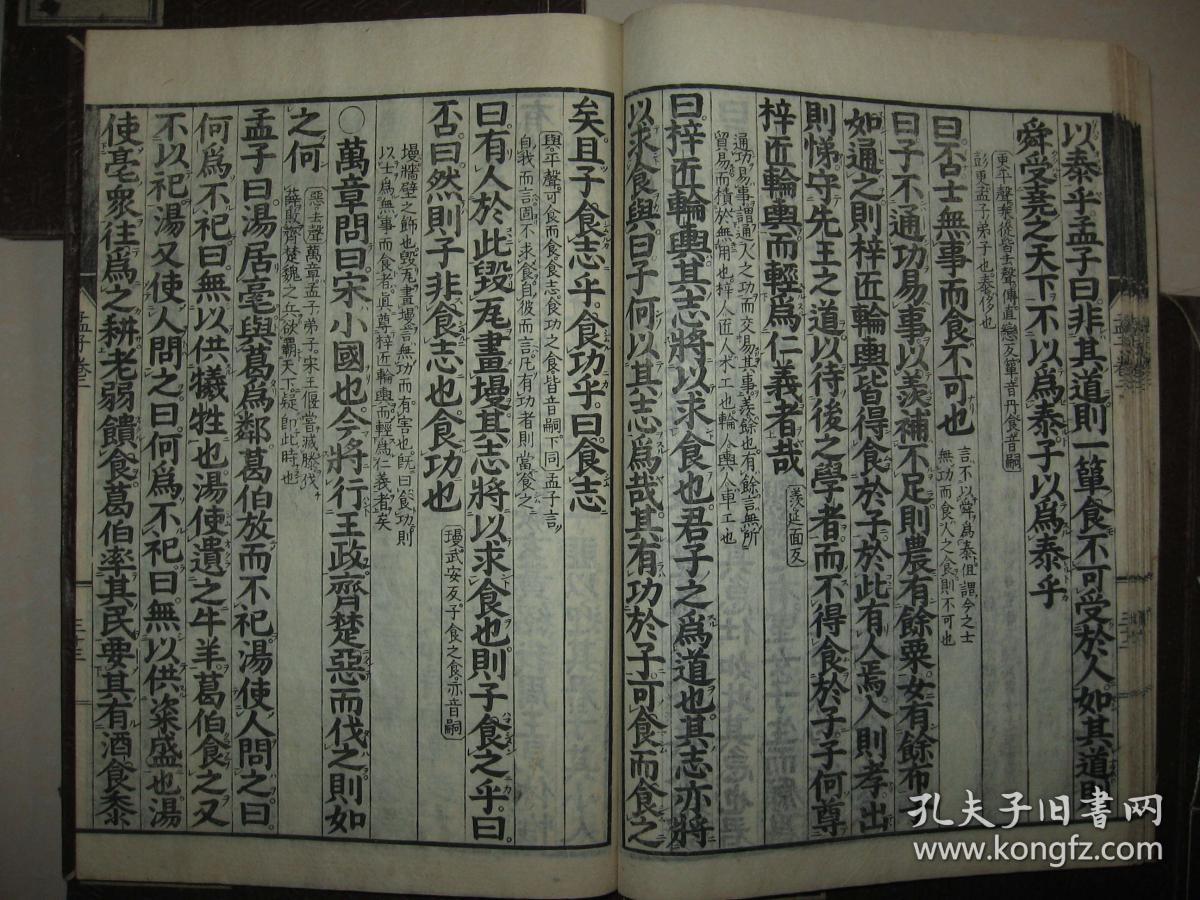 以泰乎孟子曰非其道則一簞食不可受於人如其道則
舜受堯之天下不以爲泰子以爲泰乎
更平聲乘從皆去聲傳直戀反簞音丹食音嗣
彭更孟子弟子也泰侈也
曰否士無事而食不可也
言不以舜爲泰但謂今之士
無功而食人之食則不可也
曰子不通功易事以羨補不足則農有餘粟女有餘布
如通之則梓匠輪輿皆得食於子於此有人焉入則孝出
則悌守先王之道以待後之學者而不得食於子子何尊
梓匠輪輿而輕爲仁義者哉
羨延面反
通功易事謂通人之功而交易其事羨餘也有餘言無所
貿易而積於無用也梓人匠人木工也輪人輿人車工也
曰梓匠輪輿其志將以求食也君子之爲道也其志亦將
以求食與曰子何以其志爲哉其有功於子可食而食之
矣且子食志乎食功乎曰食志
與平聲可食而食食志食功之食皆音嗣下同孟子言
自我而言固不求食自彼而言凡有功者則當食之
曰有人於此毀瓦畫墁其志將以求食也則子食之乎曰
否曰然則子非食志也食功也
墁武安反子食之食亦音嗣
墁牆壁之飾也毀瓦畫墁言無功而有害也既曰食功則
以士爲無事而食者眞尊梓匠輪輿而輕爲仁義者矣
○萬章問曰宋小國也今將行王政齊楚惡而伐之則如
之何
惡去聲萬章孟子弟子宋王偃嘗滅滕伐
薛敗齊楚魏之兵欲霸天下疑即此時也
孟子曰湯居亳與葛爲鄰葛伯放而不祀湯使人問之曰
何爲不祀曰無以供犧牲也湯使遺之牛羊葛伯食之又
不以祀湯又使人問之曰何爲不祀曰無以供粢盛也湯
使亳衆往爲之耕老弱饋食葛伯率其民要其有酒食黍
孟子卷三
三十三
孔夫子旧书网
www.kongfz.com